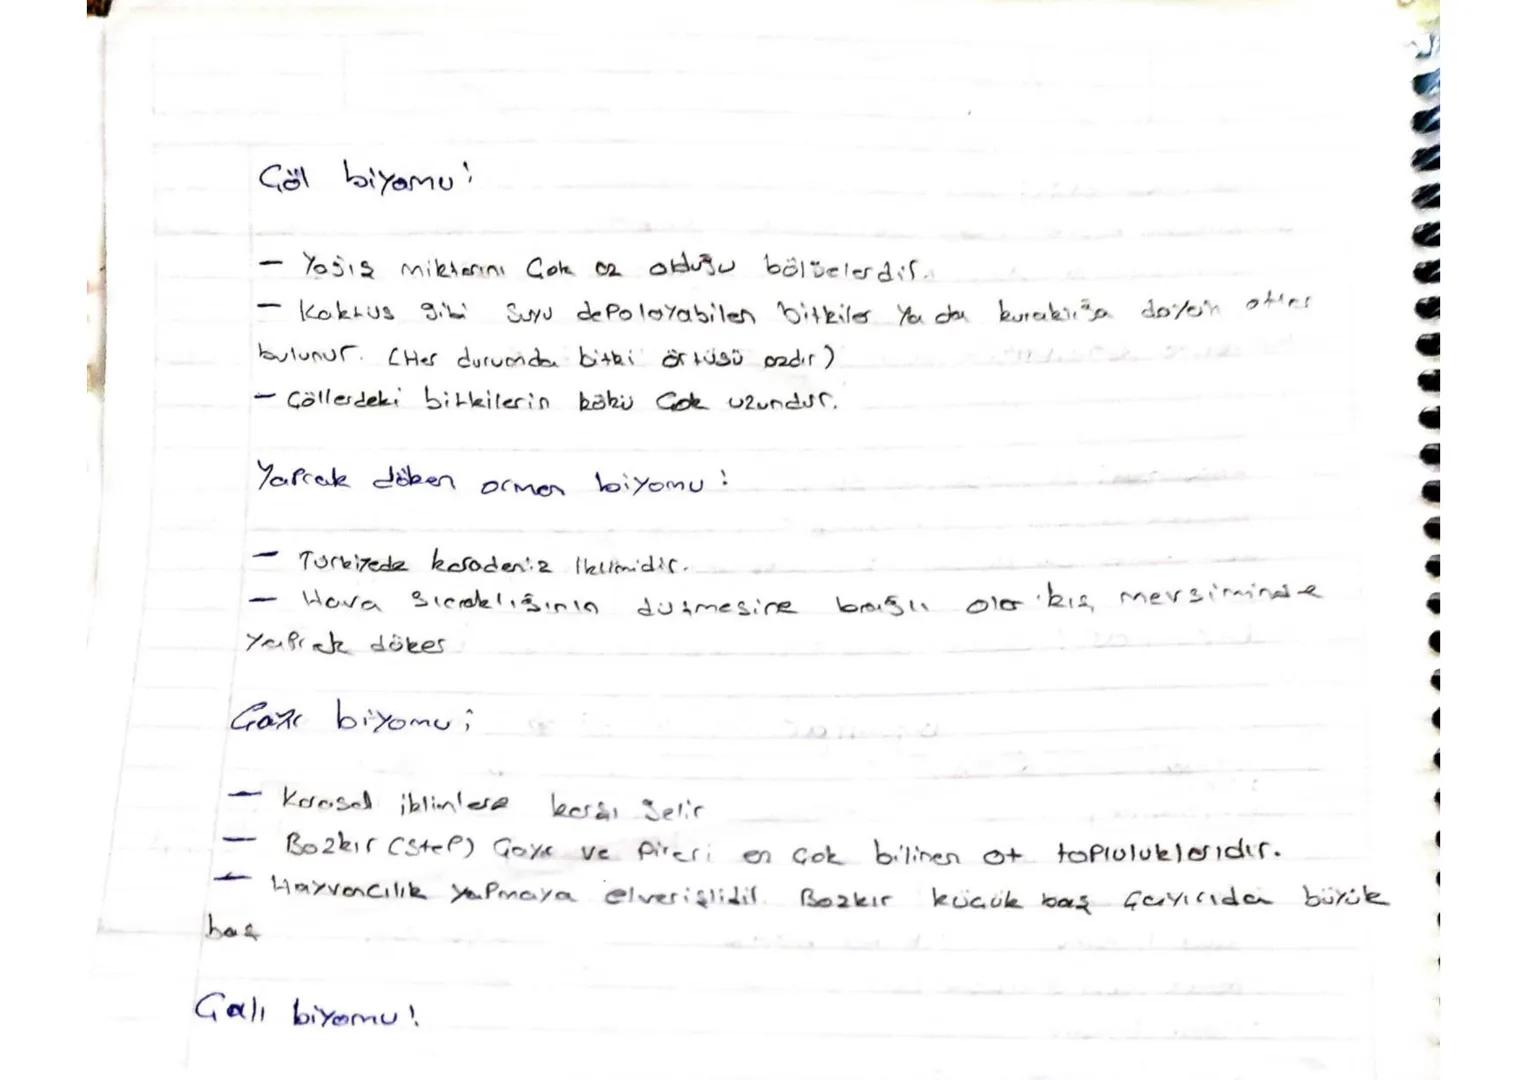 Çöl biyomu:
- Yağış miktarını çok az olduğu bölgelerdir.
- Kaktüs gibi suyu depolayabilen bitkiler ya da kuraklığa dayalı otlar
bulunur. (Her durumda bitki örtüsü azdır)
- Çöllerdeki bitkilerin kökü çok uzundur.
Yaprak döken orman biyomu:
- Türkiyede karadeniz iklimidir.
- Hava sıcaklığının düşmesine bağlı olar kış mevsiminde
yaprak döker
Çayır biyomu;
- Karasal iklimlere karşı gelir
- Bozkır (step) Çayır ve pireri en çok bilinen ot topluluklarıdır.
- Hayvancılık yapmaya elverişlidir. Bozkır küçük baş çayırıda büyük
baş
Çalı biyomu!